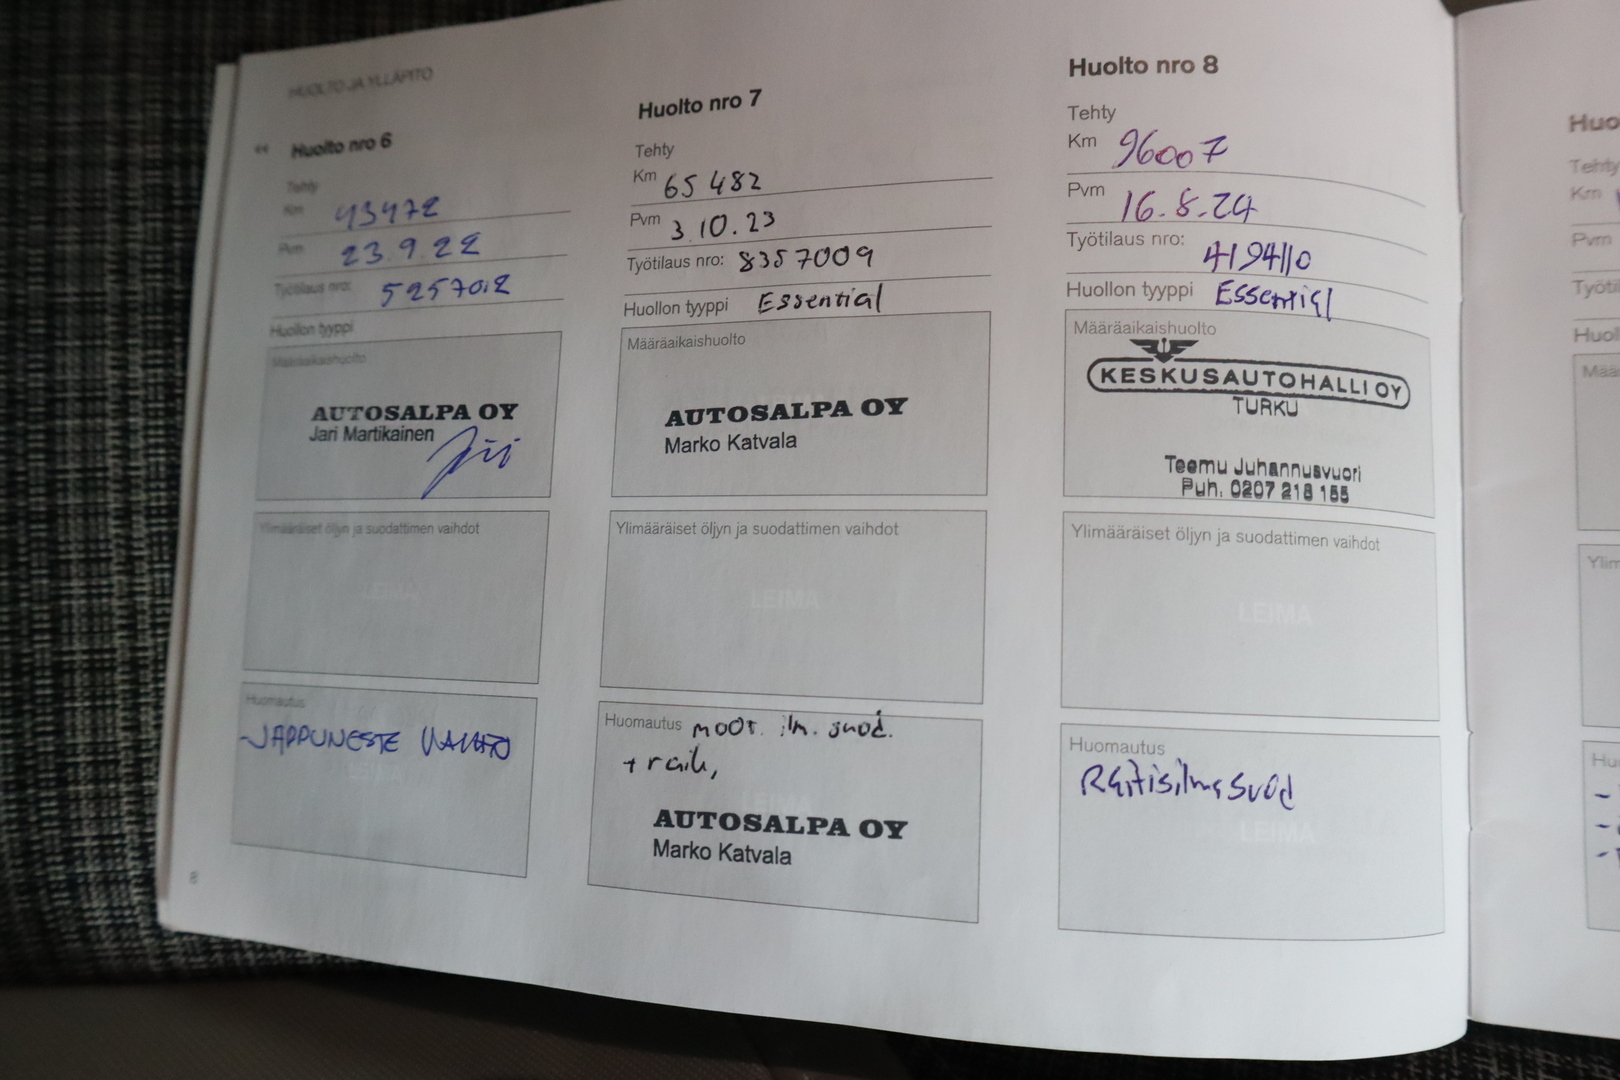 HUOLTO JA YLLÄPITO
Huolto nro 6
Tehty
Km 43472
Pvm 23.9.22
Työtilaus nro: 5257012
Huollon tyyppi
Määräaikaishuolto
AUTOSALPA OY
Jari Martikainen
Ylimääräiset öljyn ja suodattimen vaihdot
LEIMA
Huomautus
-JARRUNESTE VAIHTO
LEIMA
8
Huolto nro 7
Tehty
Km 65 482
Pvm 3.10.23
Työtilaus nro: 8357009
Huollon tyyppi Essential
Määräaikaishuolto
AUTOSALPA OY
Marko Katvala
Ylimääräiset öljyn ja suodattimen vaihdot
LEIMA
Huomautus moot. ilm. suod.
+ rait,
LEIMA
AUTOSALPA OY
Marko Katvala
Huolto nro 8
Tehty
Km 96007
Pvm 16.8.24
Työtilaus nro:
4194110
Huollon tyyppi Essential
Määräaikaishuolto
KESKUSAUTOHALLI OY
TURKU
Teemu Juhannusvuori
Puh. 0207 218 155
Ylimääräiset öljyn ja suodattimen vaihdot
LEIMA
Huomautus
Raitisilmasuod
LEIMA
Huo
Tehty
Km
Pvm
Työtil
Huol
Mää
Ylim
Hu